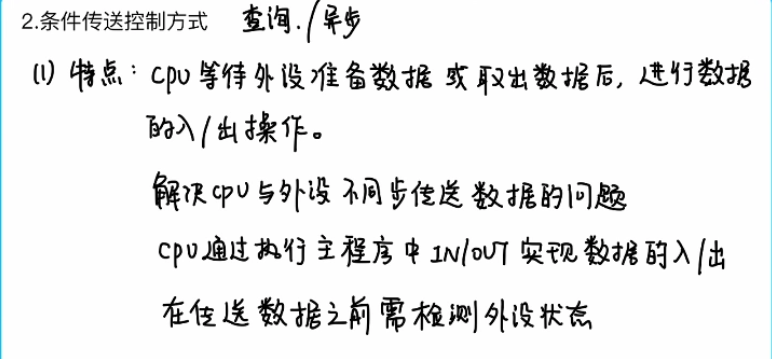 2.条件传送控制方式 查询./异步
(1) 特点：CPU等待外设准备数据或取出数据后，进行数据
的入/出操作。
解决CPU与外设不同步传送数据的问题
CPU通过执行主程序中IN/OUT实现数据的入/出
在传送数据之前需检测外设状态